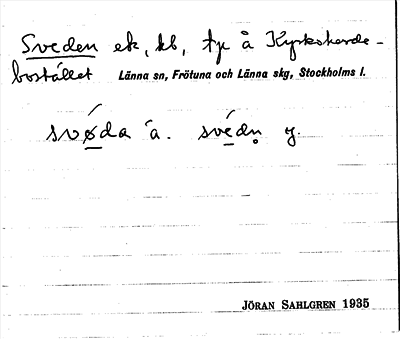 Sveden ek, kb, tp å Kyrkoherde-
bostället Länna sn, Frötuna och Länna skg, Stockholms l.
svǿ̲da a. své̲dn̥ y.
JÖRAN SAHLGREN 1935